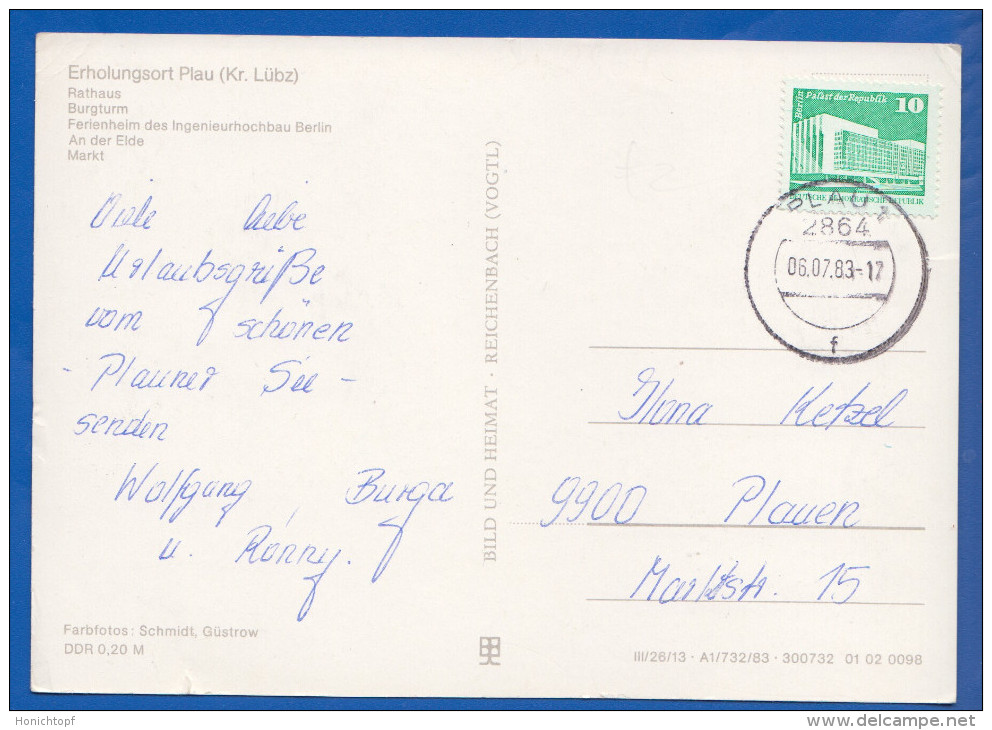 Erholungsort Plau (Kr. Lübz)
Rathaus
Burgturm
Ferienheim des Ingenieurhochbau Berlin
An der Elde
Markt
Viele liebe
Urlaubsgrüße
vom schönen
- Plauner See -
senden
Wolfgang, Burga
u. Ronny.
Farbfotos: Schmidt, Güstrow
DDR 0,20 M
BILD UND HEIMAT · REICHENBACH (VOGTL)
Berlin
Palast der Republik
10
DEUTSCHE DEMOKRATISCHE REPUBLIK
PLAU
2864
06.07.83-17
f
Ilona Ketzel
9900 Plauen
Marktstr. 15
III/26/13 · A1/732/83 · 300732 01 02 0098
Honichtopf
www.delcampe.net